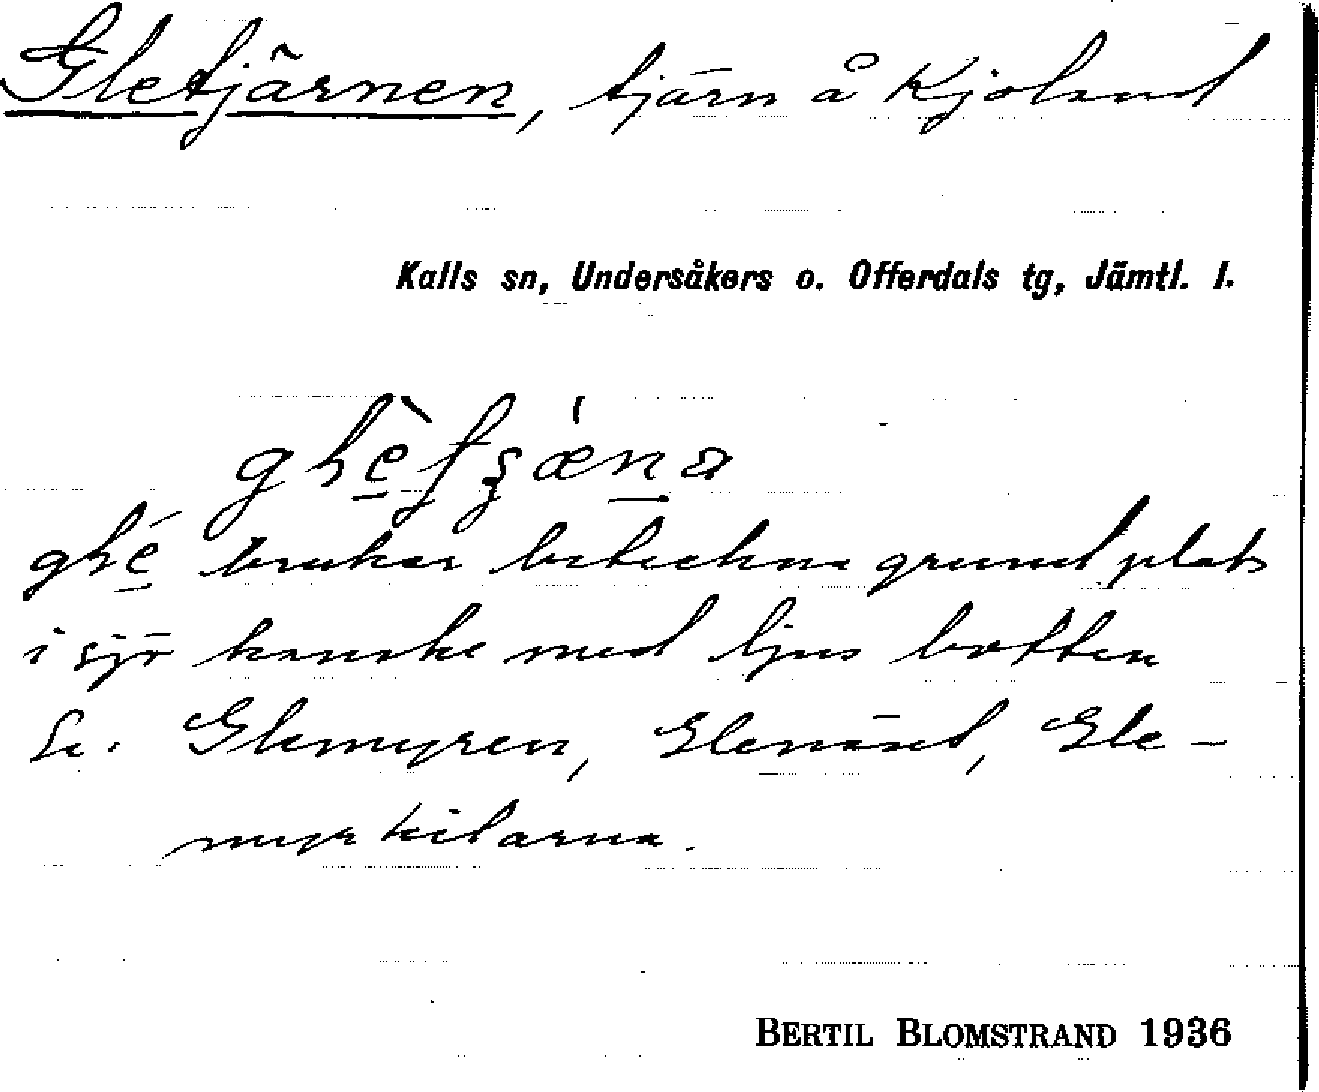 Gletjärnen, tjärn å Kjoland
Kalls sn, Undersåkers o. Offerdals tg, Jämtl. l.
brukar beteckna grund plats
i sjö kanske med ljus botten
Se. Glemyren, Glenäset, Gle-
myrkilarna.
BERTIL BLOMSTRAND 1936